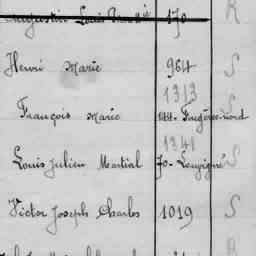 Augustin Louis 170 R
Henri Marie 964 S
1313
François Marie 144-Fougères-nord S
1341
Louis Julien Martial 70-Louvigné S
Victor Joseph Charles 1019 S
R